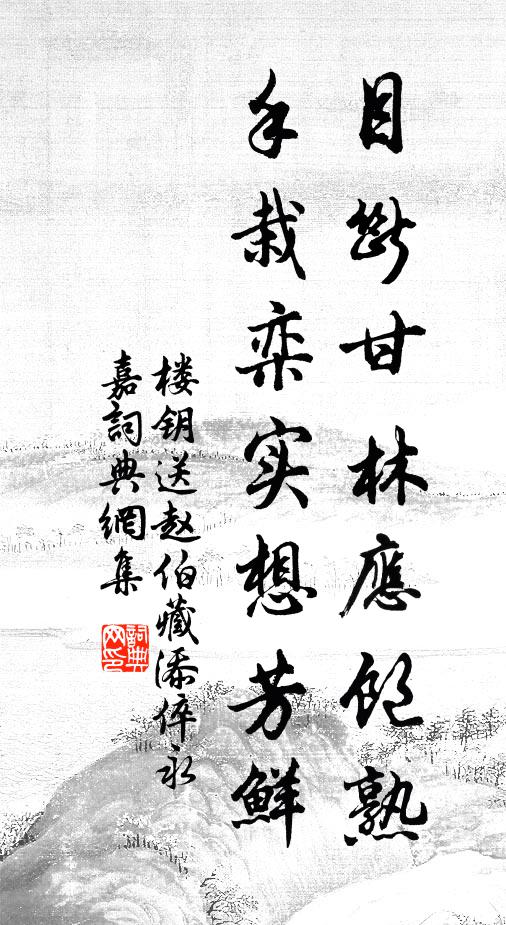 目断甘林应饱熟
手栽栾实想芳鲜
楼钥送赵伯藏添倅永
嘉詞典網集
詞典